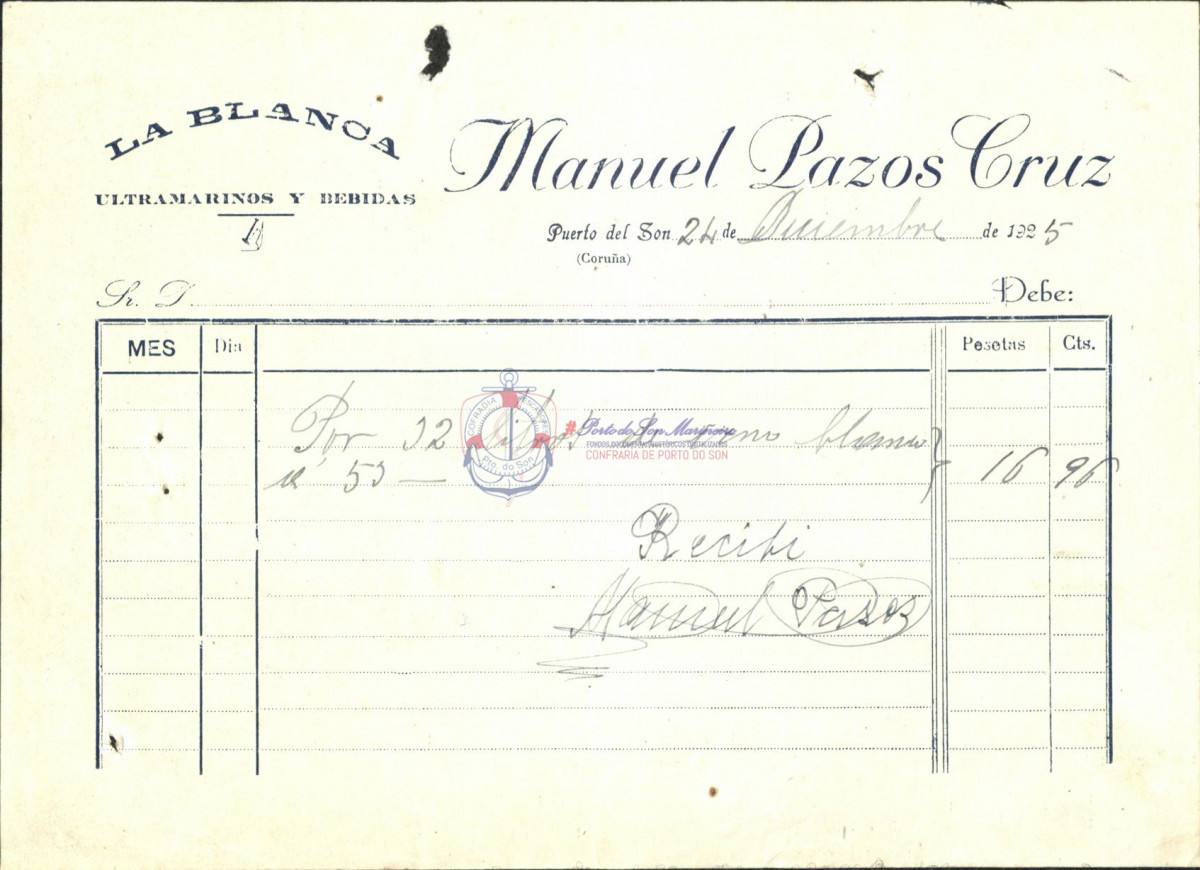 LA BLANCA
ULTRAMARINOS Y BEBIDAS
Manuel Pazos Cruz
Puerto del Son 24 de Diciembre de 1925
(Coruña)
Sr. D. Debe:
MES Dia Pesetas Cts.
Por 32 litros de vino blanco
a 53 — 16 96
COFRADIA PESCADORES
Pto. do Son
#Porto do Son Mariñeiro
FONDOS DOCUMENTAIS HISTÓRICOS DIGITALIZADOS
CONFRARÍA DE PORTO DO SON
Recibi
Manuel Pazos